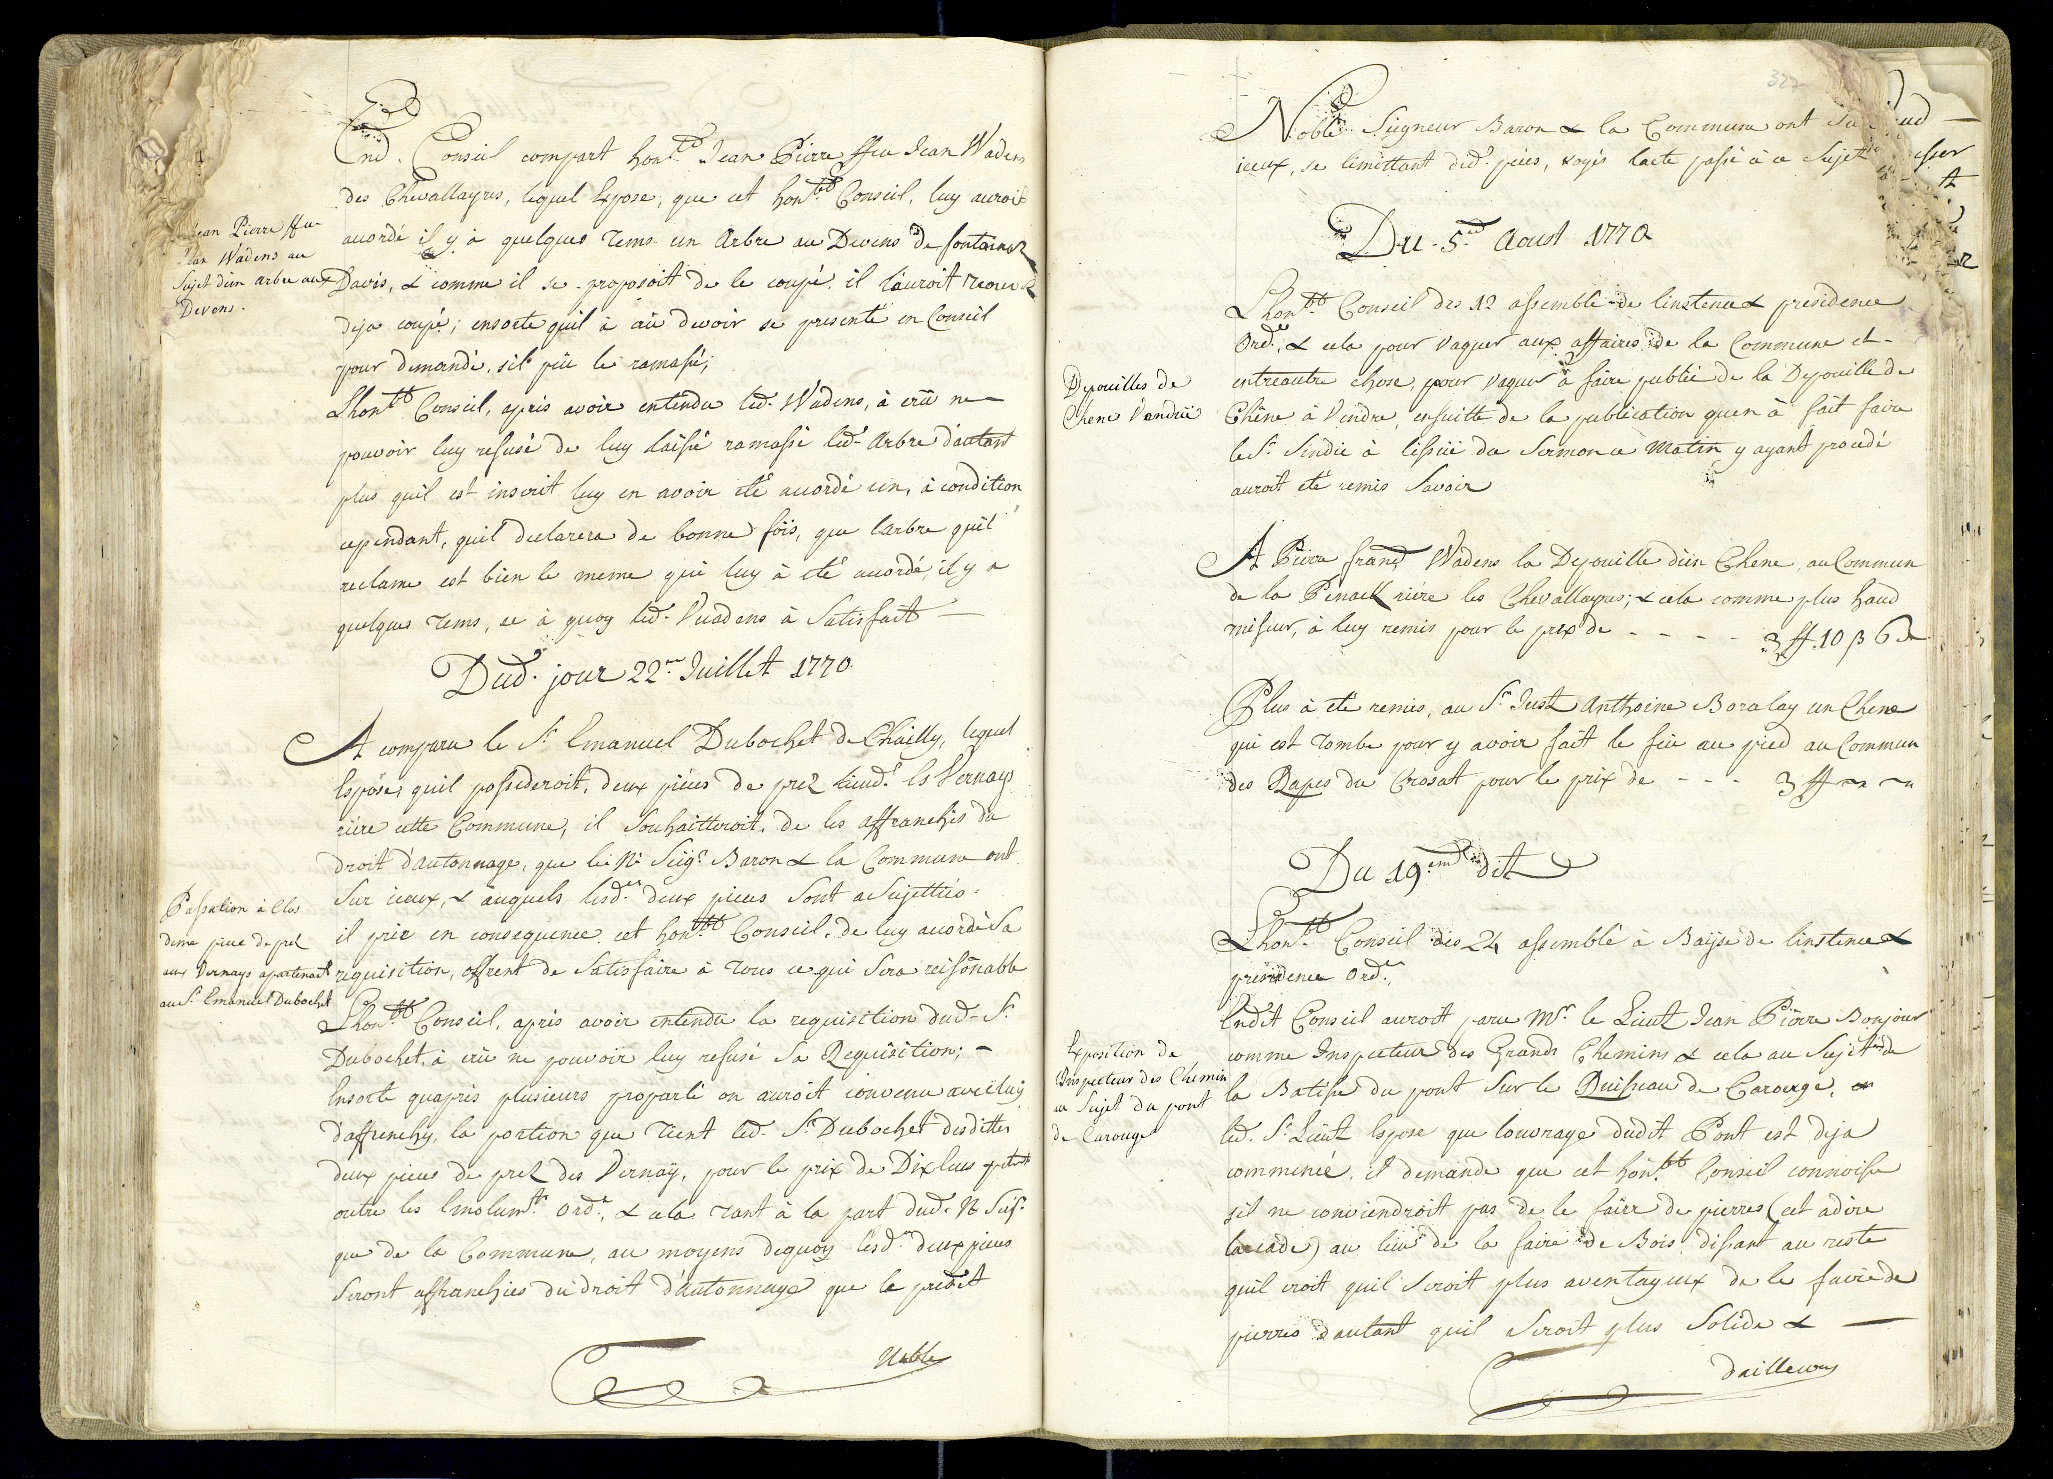 End. Conseil compart hon.ble Jean Pierre ffeu Jean Wadens
des Chevallayres, lequel Expose, que cet hon.ble Conseil, luy auroit
Jean Pierre ffeu
Jean Wadens au
Sujet d'un arbre aux
Devens.
accordé il y à quelques tems un Arbre au Devens de fontaines
Davis, & comme il se proposoit de le coupé. il l'auroit trouvé
deja coupé; ensorte quil à aü devoir se presenté en Conseil
pour demandé. sil püt le ramassé;
Lhon.ble Conseil, après avoir entendu led. Wadens, à crû ne
pouvoir luy refusé de luy laissé ramassé led. Arbre d'autant
plus quil est inscrit luy en avoir eté accordé un, à condition
cependant, quil declarera de bonne fois, que l'arbre quil
reclame est bien le meme qui luy à eté accordé, il y a
quelques tems, ce à quoy led. Vuadens à Satisfait
Dud. jour 22.me Juillet 1770
A comparu le S.r Emanuel Dubochet de Chailly, lequel
Expose, quil possederoit, deux pièces de prez lieud.t Es Vernays
riére cette Commune, il Souhaitteroit, de les affranchis du
droit d'automnage, que le N. Seig.r Baron & la Commune ont
Sur iceux, & auquels lesd.es deux pieces Sont aSujetties.
Passation à Clos
dune piece de prez
aux Vernays apartenant
au S.r Emanuel Dubochet
il prie en consequence cet hon.ble Conseil, de luy accordé Sa
requisition, offrent de Satisfaire à tous ce qui Sera reisonable
Lhon.ble Conseil, après avoir entendu la requisition dud. S.r
Dubochet, à crû ne pouvoir luy refusé Sa Requisition;
Ensorte quaprès plusieurs proparlé on auroit convenu avec luy
d'affrenchy, la portion que tient led. S.r Dubochet desdittes
deux pieces de prez des Vernay, pour le prix de Dix lucs petit
outre les Emolum.ts Ord.e, & cela tant à la part dud. N. Seig.r
que de la Commune, au moyens dequoy lesd. deux pieces
Seront affranchies du droit d'automnage que le prédit
Noble
Noble Seigneur Baron & la Commune ont
iceux, se limittant dud. pièces, voyés lacte passé à ce Sujet
Du 5.me Aoust 1770
Lhon.ble Conseil des 12 assemblé de linstence & presidence
Ord.e, & cela pour vaquer aux affaires de la Commune et
Depouilles de
Chene Vendüe
entreautre chose, pour vaquer à faire publié de la Depouille de
Chêne à Vendre, ensuitte de la publication quen à fait faire
le S.r Sindic à lissüe du Sermon ce Matin y ayant procedé
auroit eté remis Savoir
A Pierre franç Wadens la Depouille d'un Chene, au Commun
de la riére les Chevallayres; & cela comme plus haud
miseur, à luy remis pour le prix de - - - - 3 ff 10 β 6 d
Plus à eté remis, au S.r Just Anthoine Boralay un Chene
qui est tombe pour y avoir fait le feu au pied au Commun
des Rapes du Crosat pour le prix de - - - 3 ff
Du 19.eme dit
Lhon.ble Conseil des 24 assemblé à Bayse de linstence &
presidence Ord.e.
Exposition de
Inspecteur des Chemin
au Sujet du pont
de Carouge
Endit Conseil auroit paru M.r le Lieut Jean Pierre Bonjour
comme Inspecteur des Grands Chemins & cela au Sujet de
la Batisse du pont Sur le Ruisseau de Carouge, on
led. S.r Lieut Expose que l'ouvrage dudit Pont est deja
commencé, il demande que cet hon.ble Conseil connoisse
sil ne conviendroit pas de le faire de pierres (cet adire
larcade) au lieu de la faire de Bois, dissant au reste
quil croit quil Seroit plus aventageux de le faire de
pierres dautant quil Seroit plus Solide &
dailleurs